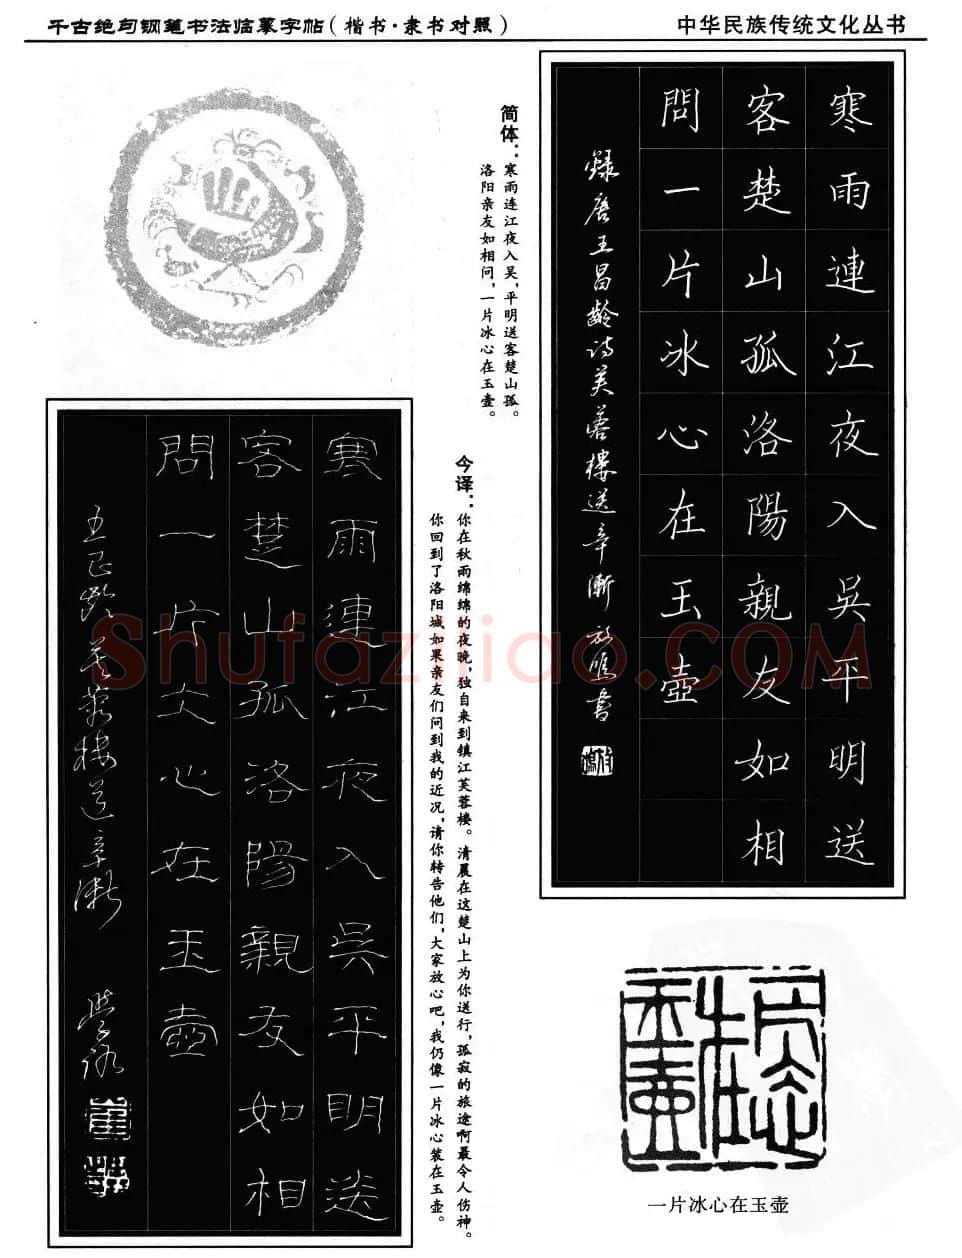 千古绝句钢笔书法临摹字帖(楷书·隶书对照)
中华民族传统文化丛书
寒雨連江夜入吳平明送
客楚山孤洛陽親友如相
問一片冰心在玉壺
録唐王昌齡诗芙蓉樓送辛漸
简体:寒雨连江夜入吴,平明送客楚山孤。
洛阳亲友如相问,一片冰心在玉壶。
今译:你在秋雨绵绵的夜晚,独自来到镇江芙蓉楼。清晨在这楚山上为你送行,孤寂的旅途啊最令人伤神。
你回到了洛阳城如果亲友们问到我的近况,请你转告他们,大家放心吧,我仍像一片冰心装在玉壶。
寒雨連江夜入吳平明送
客楚山孤洛陽親友如相
問一片仌心在玉壺
王昌齡芙蓉樓送辛漸
一片冰心在玉壶
Shufaziliao.COM